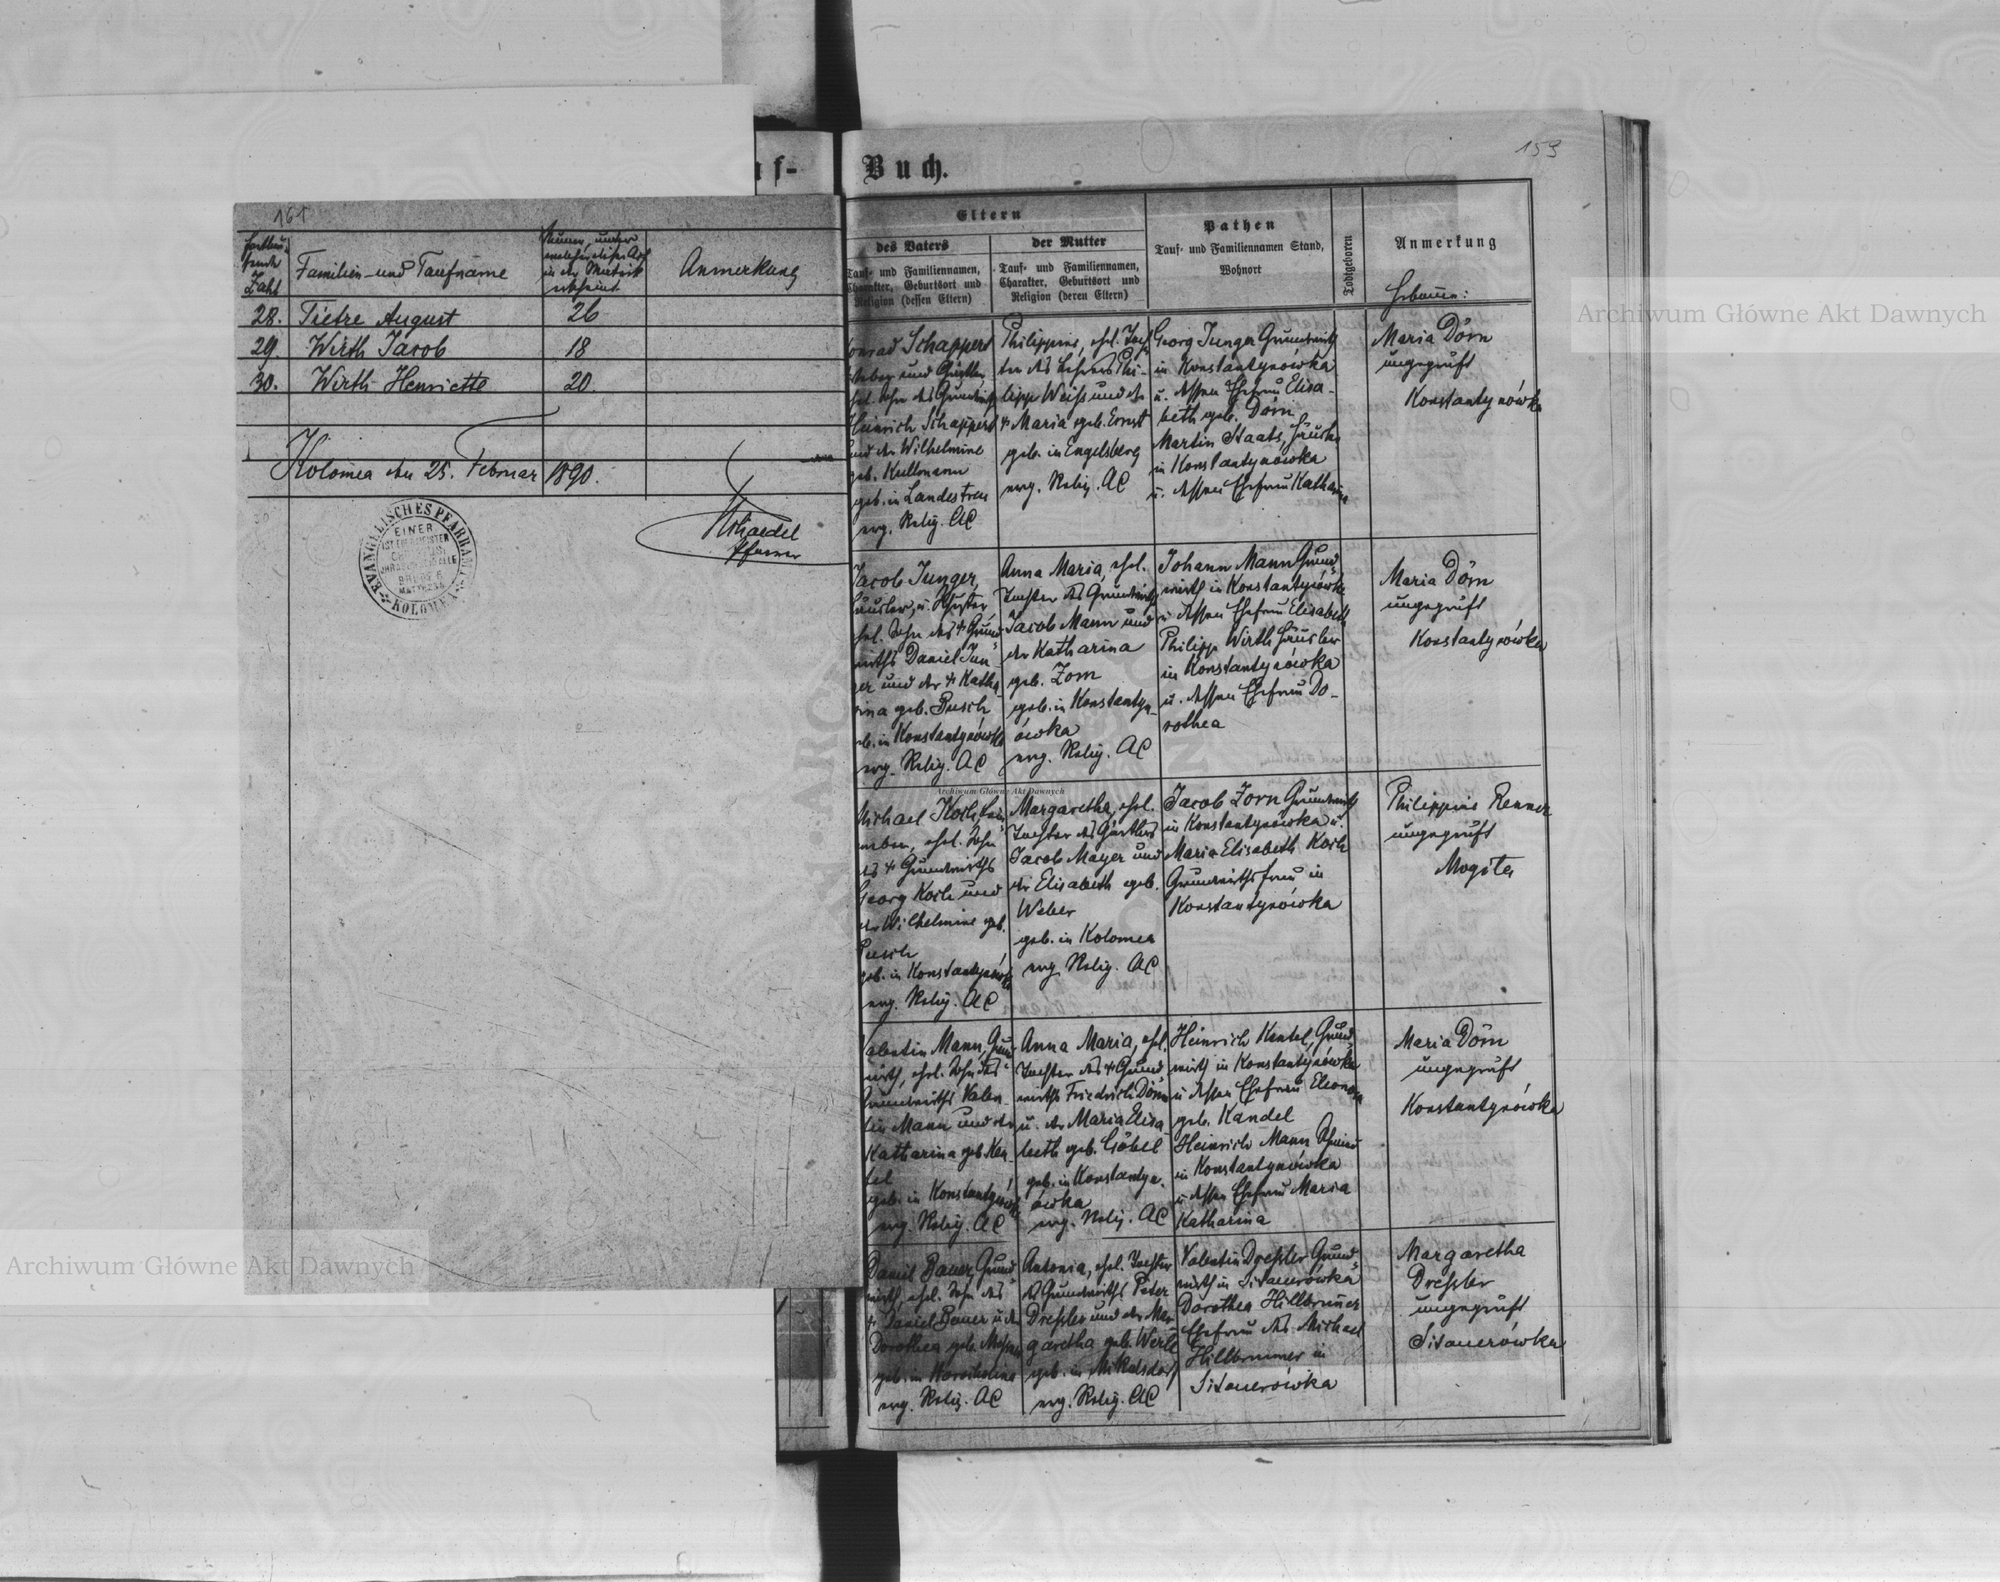 161
Familien- und Taufname
Anmerkung
28. Tietze August 26
29. Wirth Jacob 18
30. Wirth Henriette 20.
Kolomea den 25. Februar 1890.
Pfarrer
EVANGELISCHES PFARRAMT
KOLOMEA
153
Buch.
Eltern
des Vaters
Tauf- und Familiennamen,
Charakter, Geburtsort und
Religion (dessen Eltern)
der Mutter
Tauf- und Familiennamen,
Charakter, Geburtsort und
Religion (deren Eltern)
Pathen
Tauf- und Familiennamen Stand,
Wohnort
Todtgeboren
Anmerkung
Hebamme:
Schappert
Weber und
Heinrich Schappert
und der Wilhelmine
geb. Kullmann
geb. in Landestreu
evg. Relig. AC
Philippine, ehel. Toch
ter des Lehrers Phi-
lipp Weiß und der
Maria geb. Ernst
geb. in Engelsberg
evg. Relig. AC
Georg Junger Grundwirth
in Konstantynówka
u. dessen Ehefrau Elisa-
beth geb. Dörn
Martin Staats, Häusler
in Konstantynówka
u. dessen Ehefrau Katharina
Maria Dörn
ungeprüft
Konstantynówka
Jacob Junger,
Häusler u. Schuster
ehel. Sohn des † Grund
wirths Daniel Jun-
ger und der † Katha-
rina geb. Busch
geb. in Konstantynówka
evg. Relig. AC
Anna Maria, ehel.
Tochter des Grundwirths
Jacob Mann und
der Katharina
geb. Zorn
geb. in Konstantyn-
ówka
evg. Relig. AC
Johann Mann Grund
wirth in Konstantynówka
u. dessen Ehefrau Elisabeth
Philipp Wirth Häusler
in Konstantynówka
u. dessen Ehefrau Do-
rothea
Maria Dörn
ungeprüft
Konstantynówka
Michael Koch
ehel. Sohn
des † Grundwirths
Georg Koch und
der Wilhelmine geb.
Busch
geb. in Konstantynówka
evg. Relig. AC
Margaretha, ehel.
Tochter des Gärtlers
Jacob Mayer und
der Elisabeth geb.
Weber
geb. in Kolomea
evg. Relig. AC
Jacob Zorn Grundwirth
in Konstantynówka u.
Maria Elisabeth Koch
Grundwirthsfrau in
Konstantynówka
Philippine Renner
ungeprüft
Mogila
Valentin Mann, Grund
wirth, ehel. Sohn des
Grundwirths Valen-
tin Mann und der
Katharina geb. Ken-
tel
geb. in Konstantynówka
evg. Relig. AC
Anna Maria, ehel.
Tochter des † Grund
wirths Friedrich Dörn
u. der Maria Elisa
beth geb. Göbel
geb. in Konstantyn-
ówka
evg. Relig. AC
Heinrich Kentel, Grund
wirth in Konstantynówka
u. dessen Ehefrau Eleonora
geb. Kandel
Heinrich Mann Schmied
in Konstantynówka
u. dessen Ehefrau Maria
Katharina
Maria Dörn
ungeprüft
Konstantynówka
Daniel Bauer, Grund
wirth, ehel. Sohn des
† Daniel Bauer u. der
Dorothea geb.
geb. in
evg. Relig. AC
Antonia, ehel. Tochter
des Grundwirths Peter
Dreßler und der Mar
garetha geb. Werle
geb. in Mikulsdorf
evg. Relig. AC
Valentin Dreßler Grund
wirth in Sitauerówka
Dorothea Hillbrunner
Ehefrau des Michael
Hillbrunner in
Sitauerówka
Margaretha
Dreßler
ungeprüft
Sitauerówka
Archiwum Główne Akt Dawnych
Archiwum Główne Akt Dawnych
Archiwum Główne Akt Dawnych